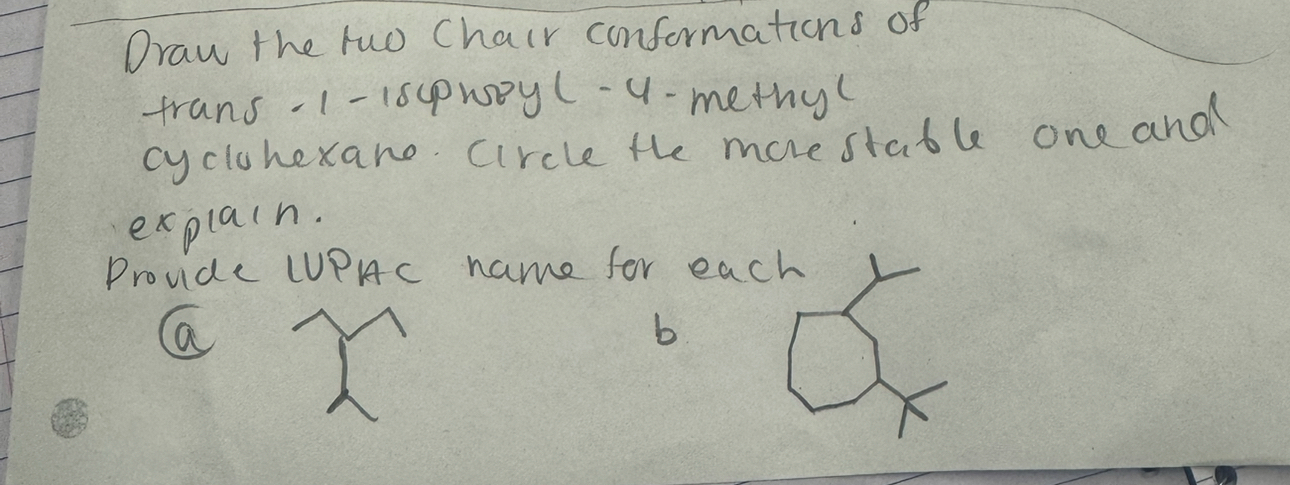 Draw the two Chair conformations of
trans -1-isopropyl-4-methyl
cyclohexane. Circle the more stable one and
explain.
Provide IUPAC name for each
a b.